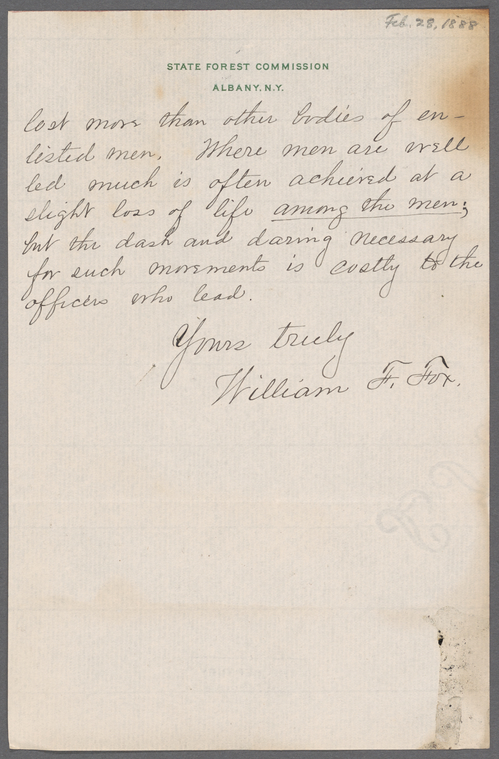 Feb. 28, 1888
STATE FOREST COMMISSION
ALBANY, N.Y.
lost more than other bodies of en-
listed men. Where men are well
led much is often achieved at a
slight loss of life among the men;
but the dash and daring necessary
for such movements is costly to the
officers who lead.
Yours truly
William F. Fox.